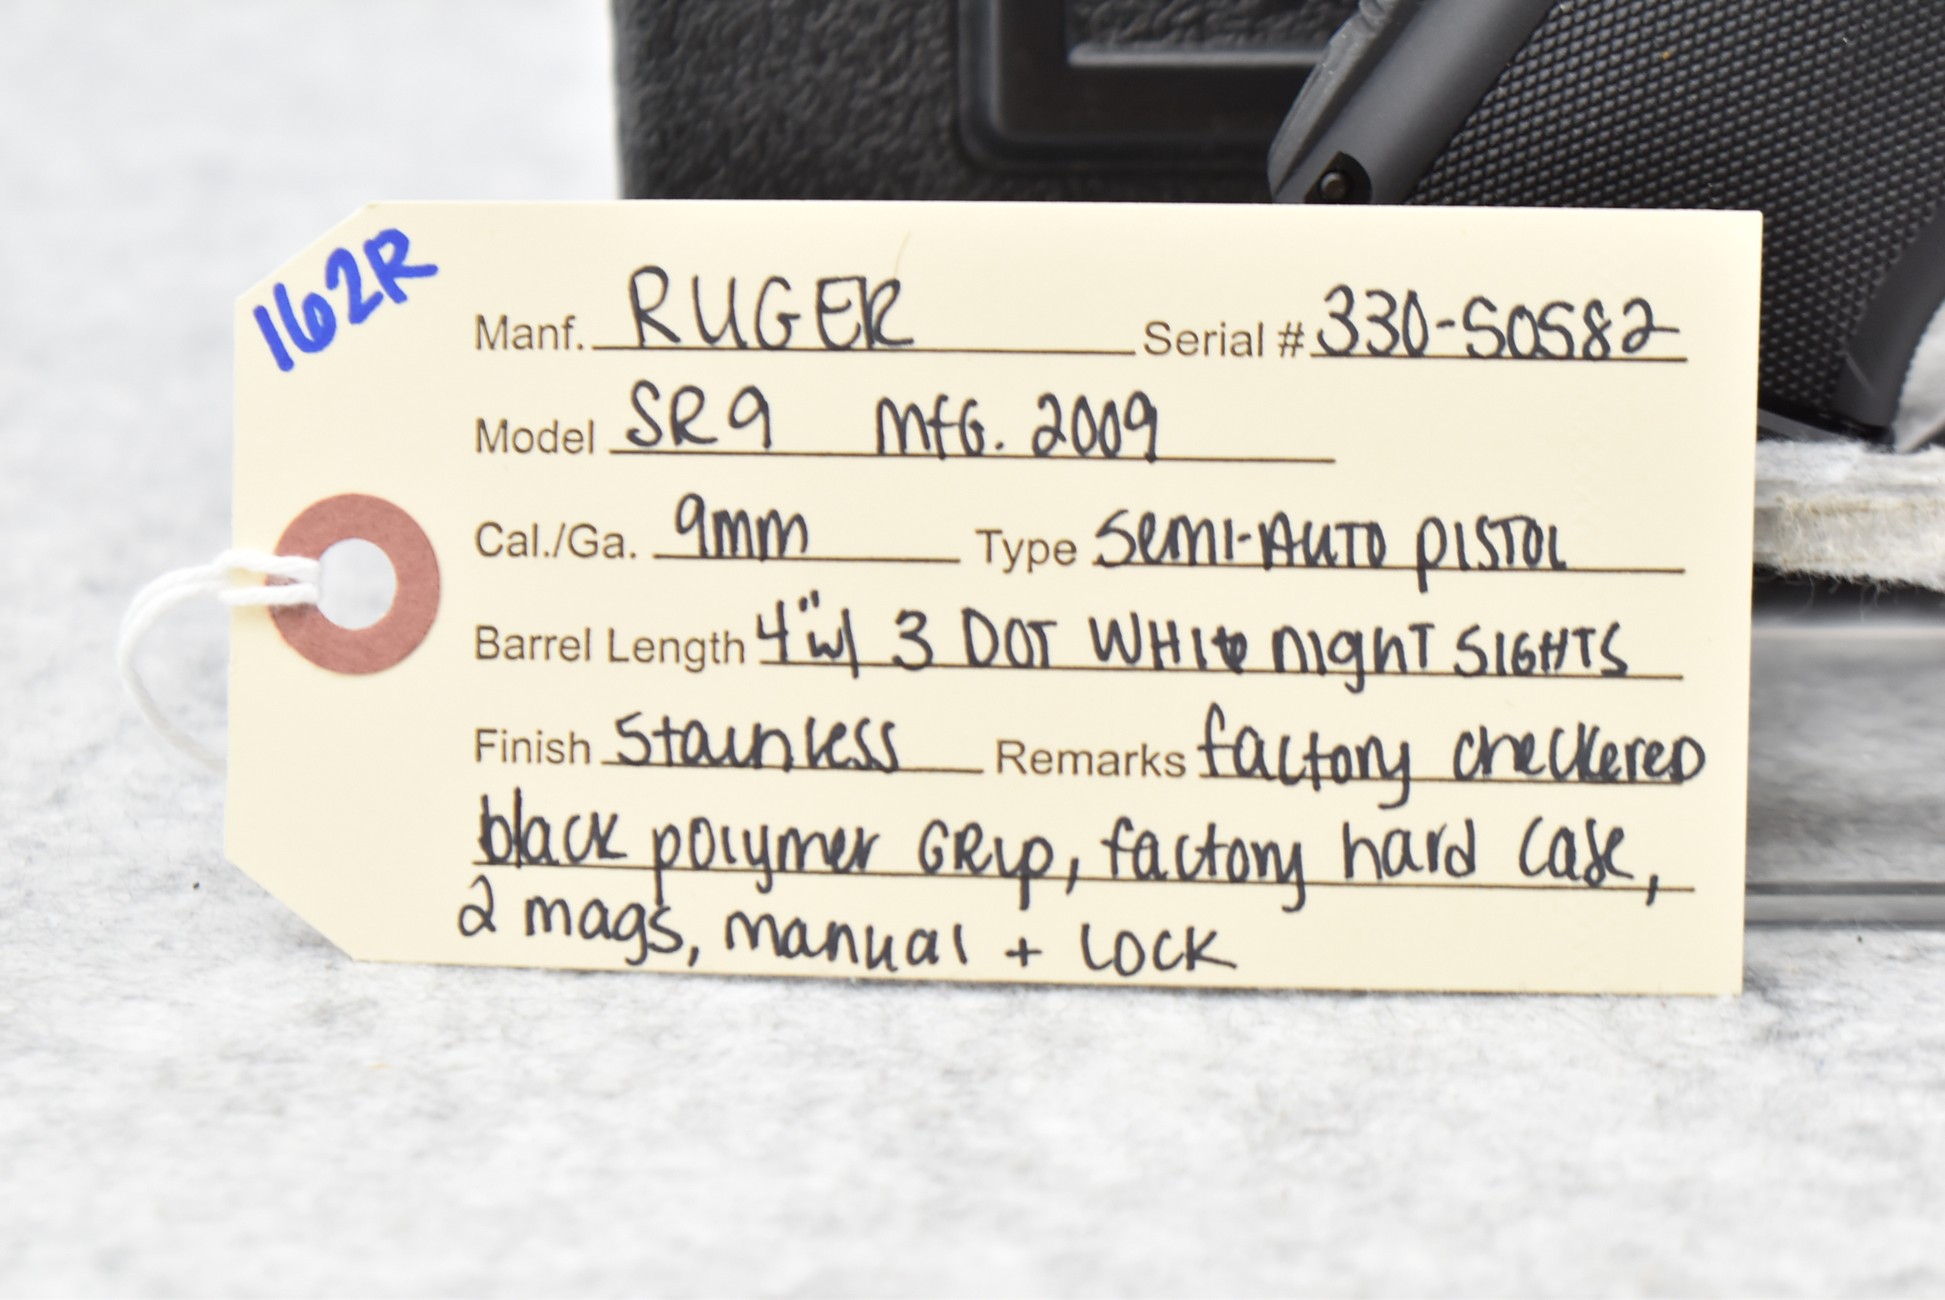 162R
Manf. RUGER Serial # 330-50582
Model SR9 MFG. 2009
Cal./Ga. 9mm Type Semi-Auto PISTOL
Barrel Length 4" w/ 3 DOT WHite nighT SIGHTS
Finish Stainless Remarks factory checkered
black polymer GRip, factory hard case,
2 mags, manual + LOCK